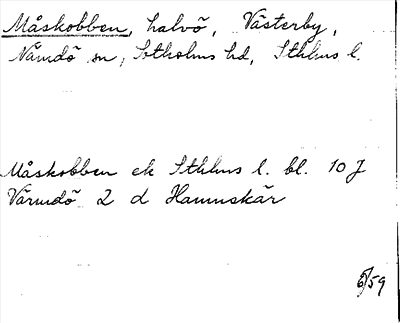 Måskobben, halvö, Västerby,
Nämdö sn, Sotholms hd, Sthlms l.
Måskobben ek Sthlms l. bl. 10 J
Värmdö 2 d Hamnskär
6/59